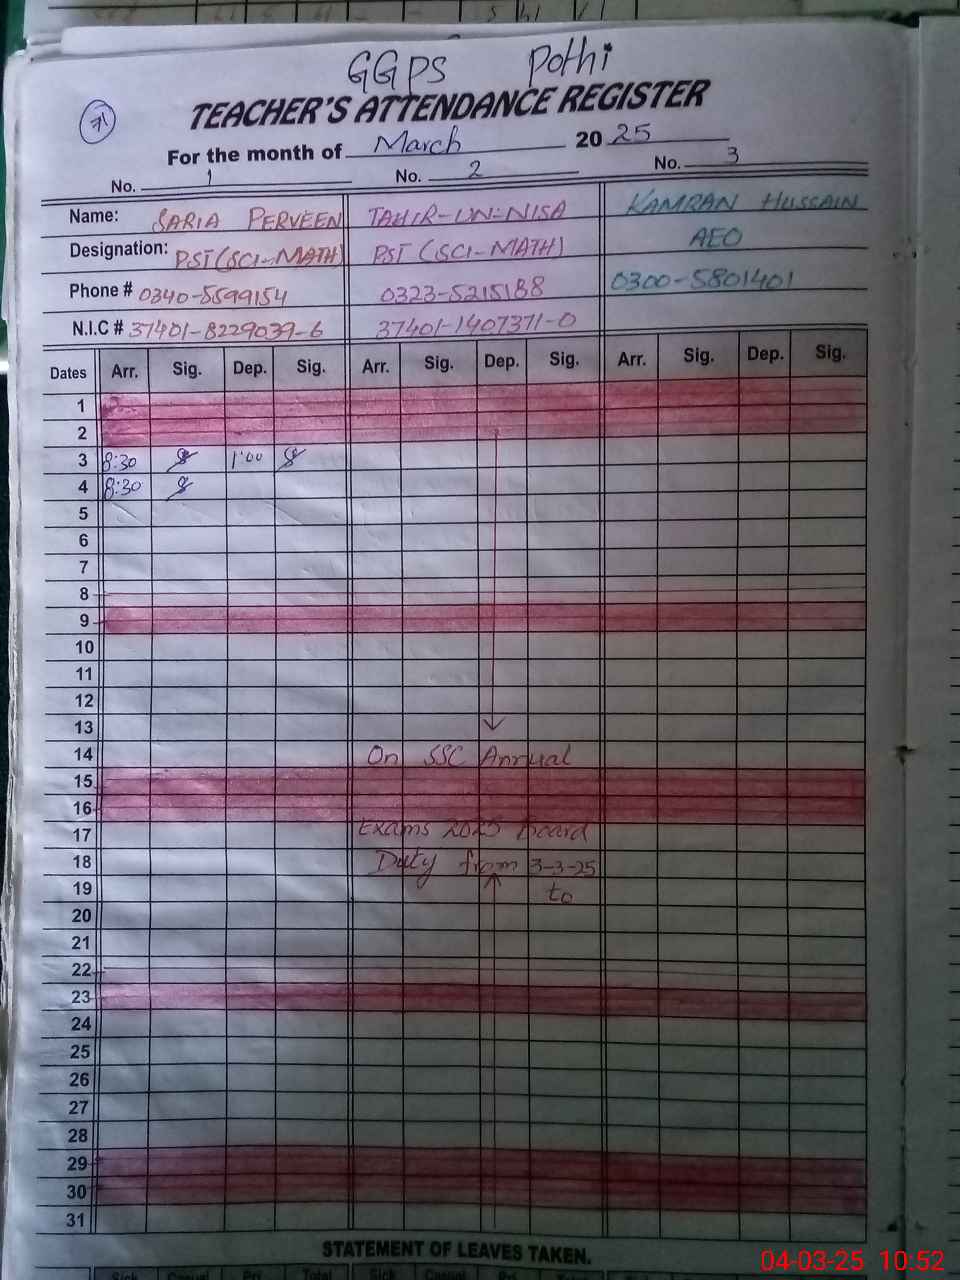 GGPS Pothi
TEACHER'S ATTENDANCE REGISTER
71
For the month of March 2025
No. 1 No. 2 No. 3
Name: SARIA PERVEEN TAHIR-UN-NISA KAMRAN HUSSAIN
Designation: PST (SCI-MATH) PST (SCI-MATH) AEO
Phone # 0340-5599154 0323-5215188 0300-5801401
N.I.C # 37401-8229039-6 37401-1407371-0
Dates Arr. Sig. Dep. Sig. Arr. Sig. Dep. Sig. Arr. Sig. Dep. Sig.
1
2
3 8:30 1:00
4 8:30
5
6
7
8
9
10
11
12
13
14 On SSC Annual
15
16
17 Exams 2025 Board
18 Duty from 3-3-25
19 to
20
21
22
23
24
25
26
27
28
29
30
31
STATEMENT OF LEAVES TAKEN.
04-03-25 10:52